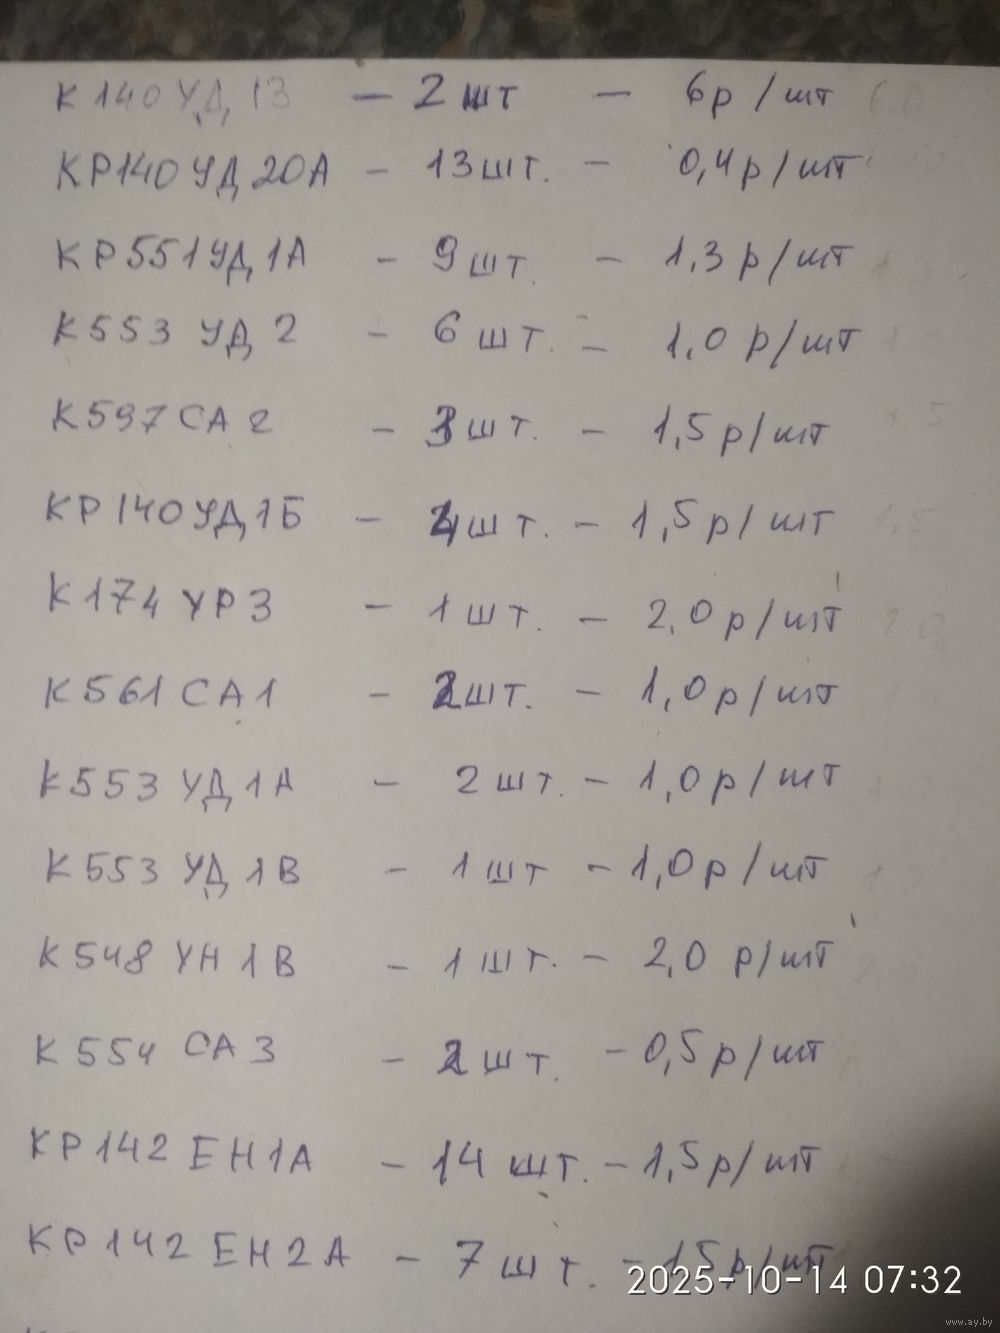 К140УД13 — 2 шт — 6р/шт
КР140УД20А - 13шт. - 0,4р/шт
КР551УД1А - 9шт. - 1,3р/шт
К553 УД2 - 6шт. - 1,0р/шт
К597СА2 - шт. - 1,5р/шт
КР140УД1Б - 4шт. - 1,5р/шт
К174УР3 - 1шт. - 2,0р/шт
К561СА1 - 2шт. - 1,0р/шт
К553УД1А - 2шт. - 1,0р/шт
К553УД1В - 1шт - 1,0р/шт
К548УН1В - 1шт. - 2,0р/шт
К554СА3 - 2шт. - 0,5р/шт
КР142ЕН1А - 14шт. - 1,5р/шт
КР142ЕН2А - 7шт. - 1,5р/шт
2025-10-14 07:32
www.ay.by